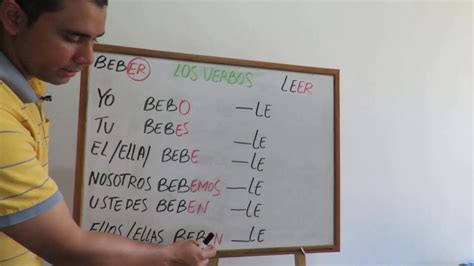 BEBER LOS VERBOS LEER
YO BEBO —LE
TU BEBES —LE
EL/ELLA/ BEBE —LE
NOSOTROS BEBEMOS —LE
USTEDES BEBEN —LE
ELLOS/ELLAS BEBEN —LE